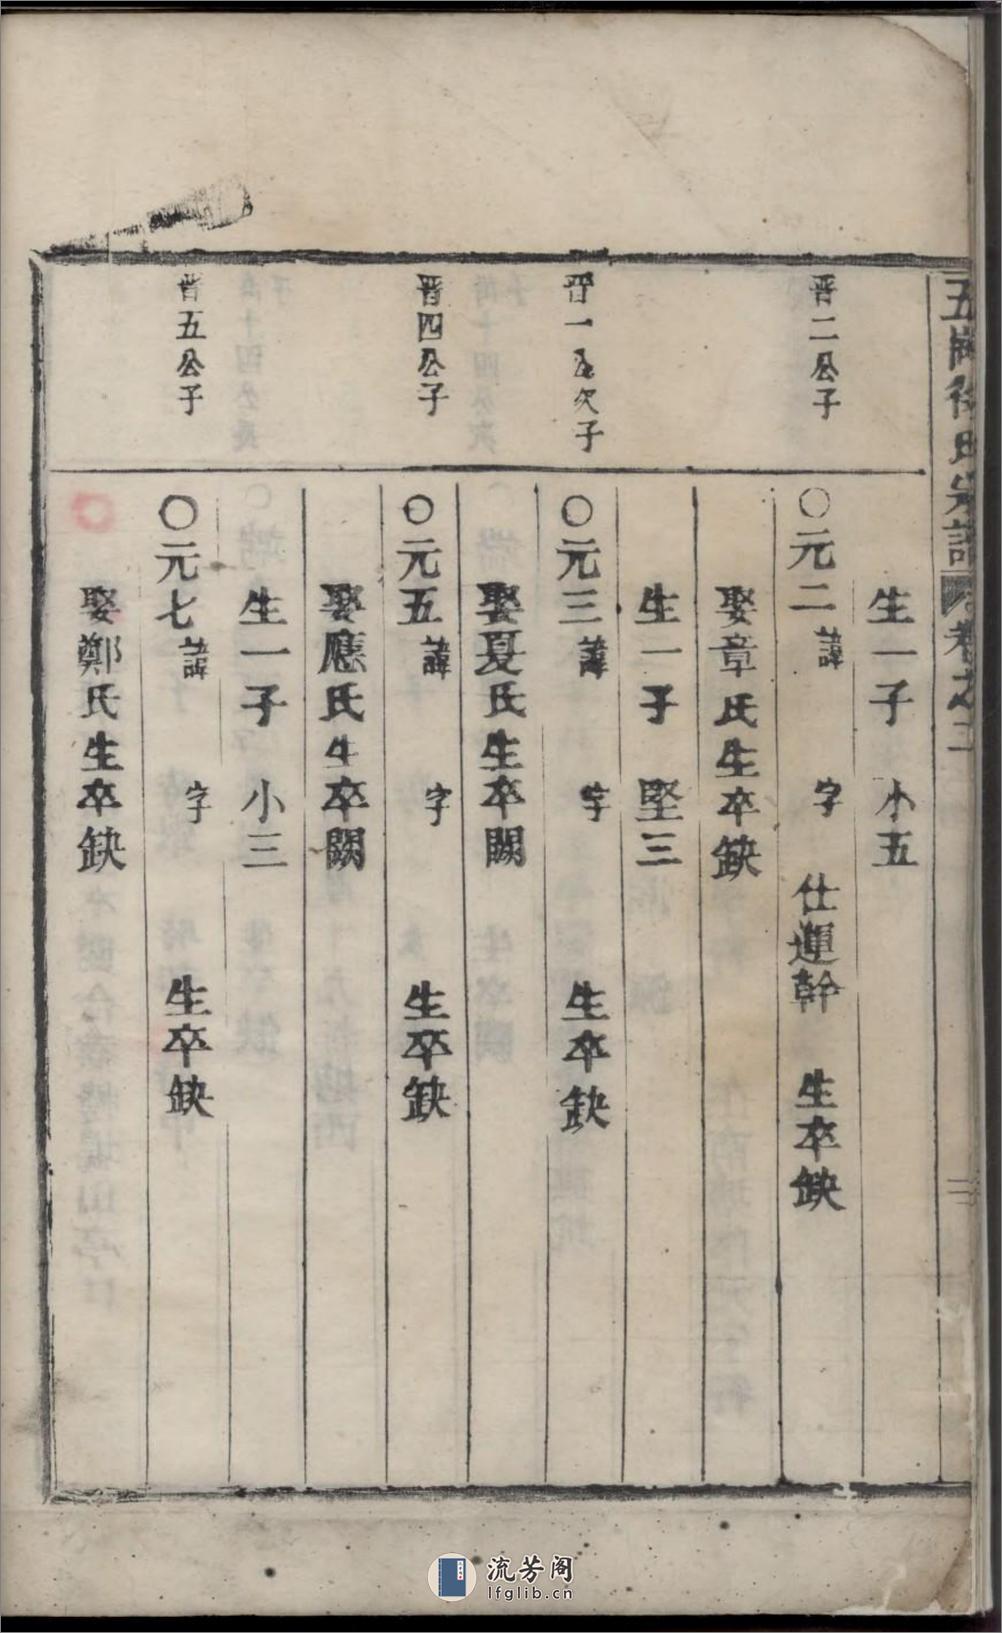 五崗徐氏宗譜 卷之二
二
生一子 小五
晋二公子
〇元二 諱 字 仕運幹 生卒缺
娶章氏生卒缺
生一子 堅三
晋一公次子
〇元三 諱 字 生卒缺
娶夏氏生卒闕
晋四公子
〇元五 諱 字 生卒缺
娶應氏生卒闕
生一子 小三
晋五公子
〇元七 諱 字 生卒缺
娶鄭氏生卒缺
流芳阁
lfglib.cn